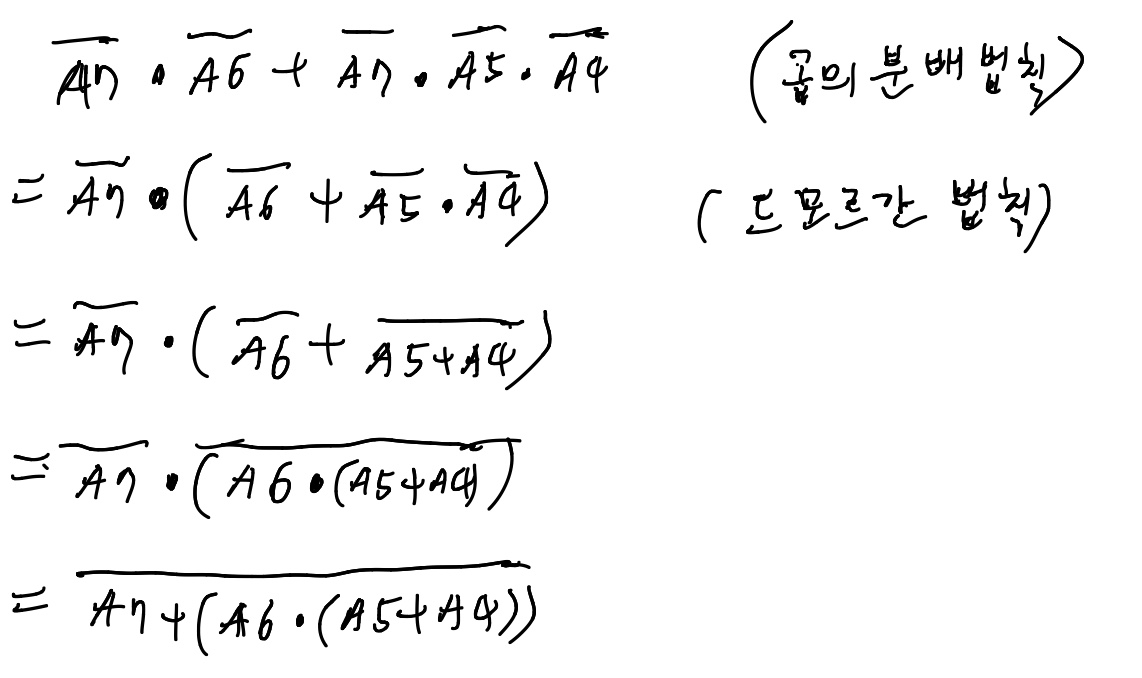 A̅7̅ · A̅6̅ + A̅7̅ · A̅5̅ · A̅4̅ (곱의 분배법칙)
= A̅7̅ · (A̅6̅ + A̅5̅ · A̅4̅) (드모르간 법칙)
= A̅7̅ · (A̅6̅ + A̅5̅+̅A̅4̅)
= A̅7̅ · (̅A̅6̅ ̅·̅ ̅(̅A̅5̅+̅A̅4̅)̅)̅
= A̅7̅+̅(̅A̅6̅ ̅·̅ ̅(̅A̅5̅+̅A̅4̅)̅)̅